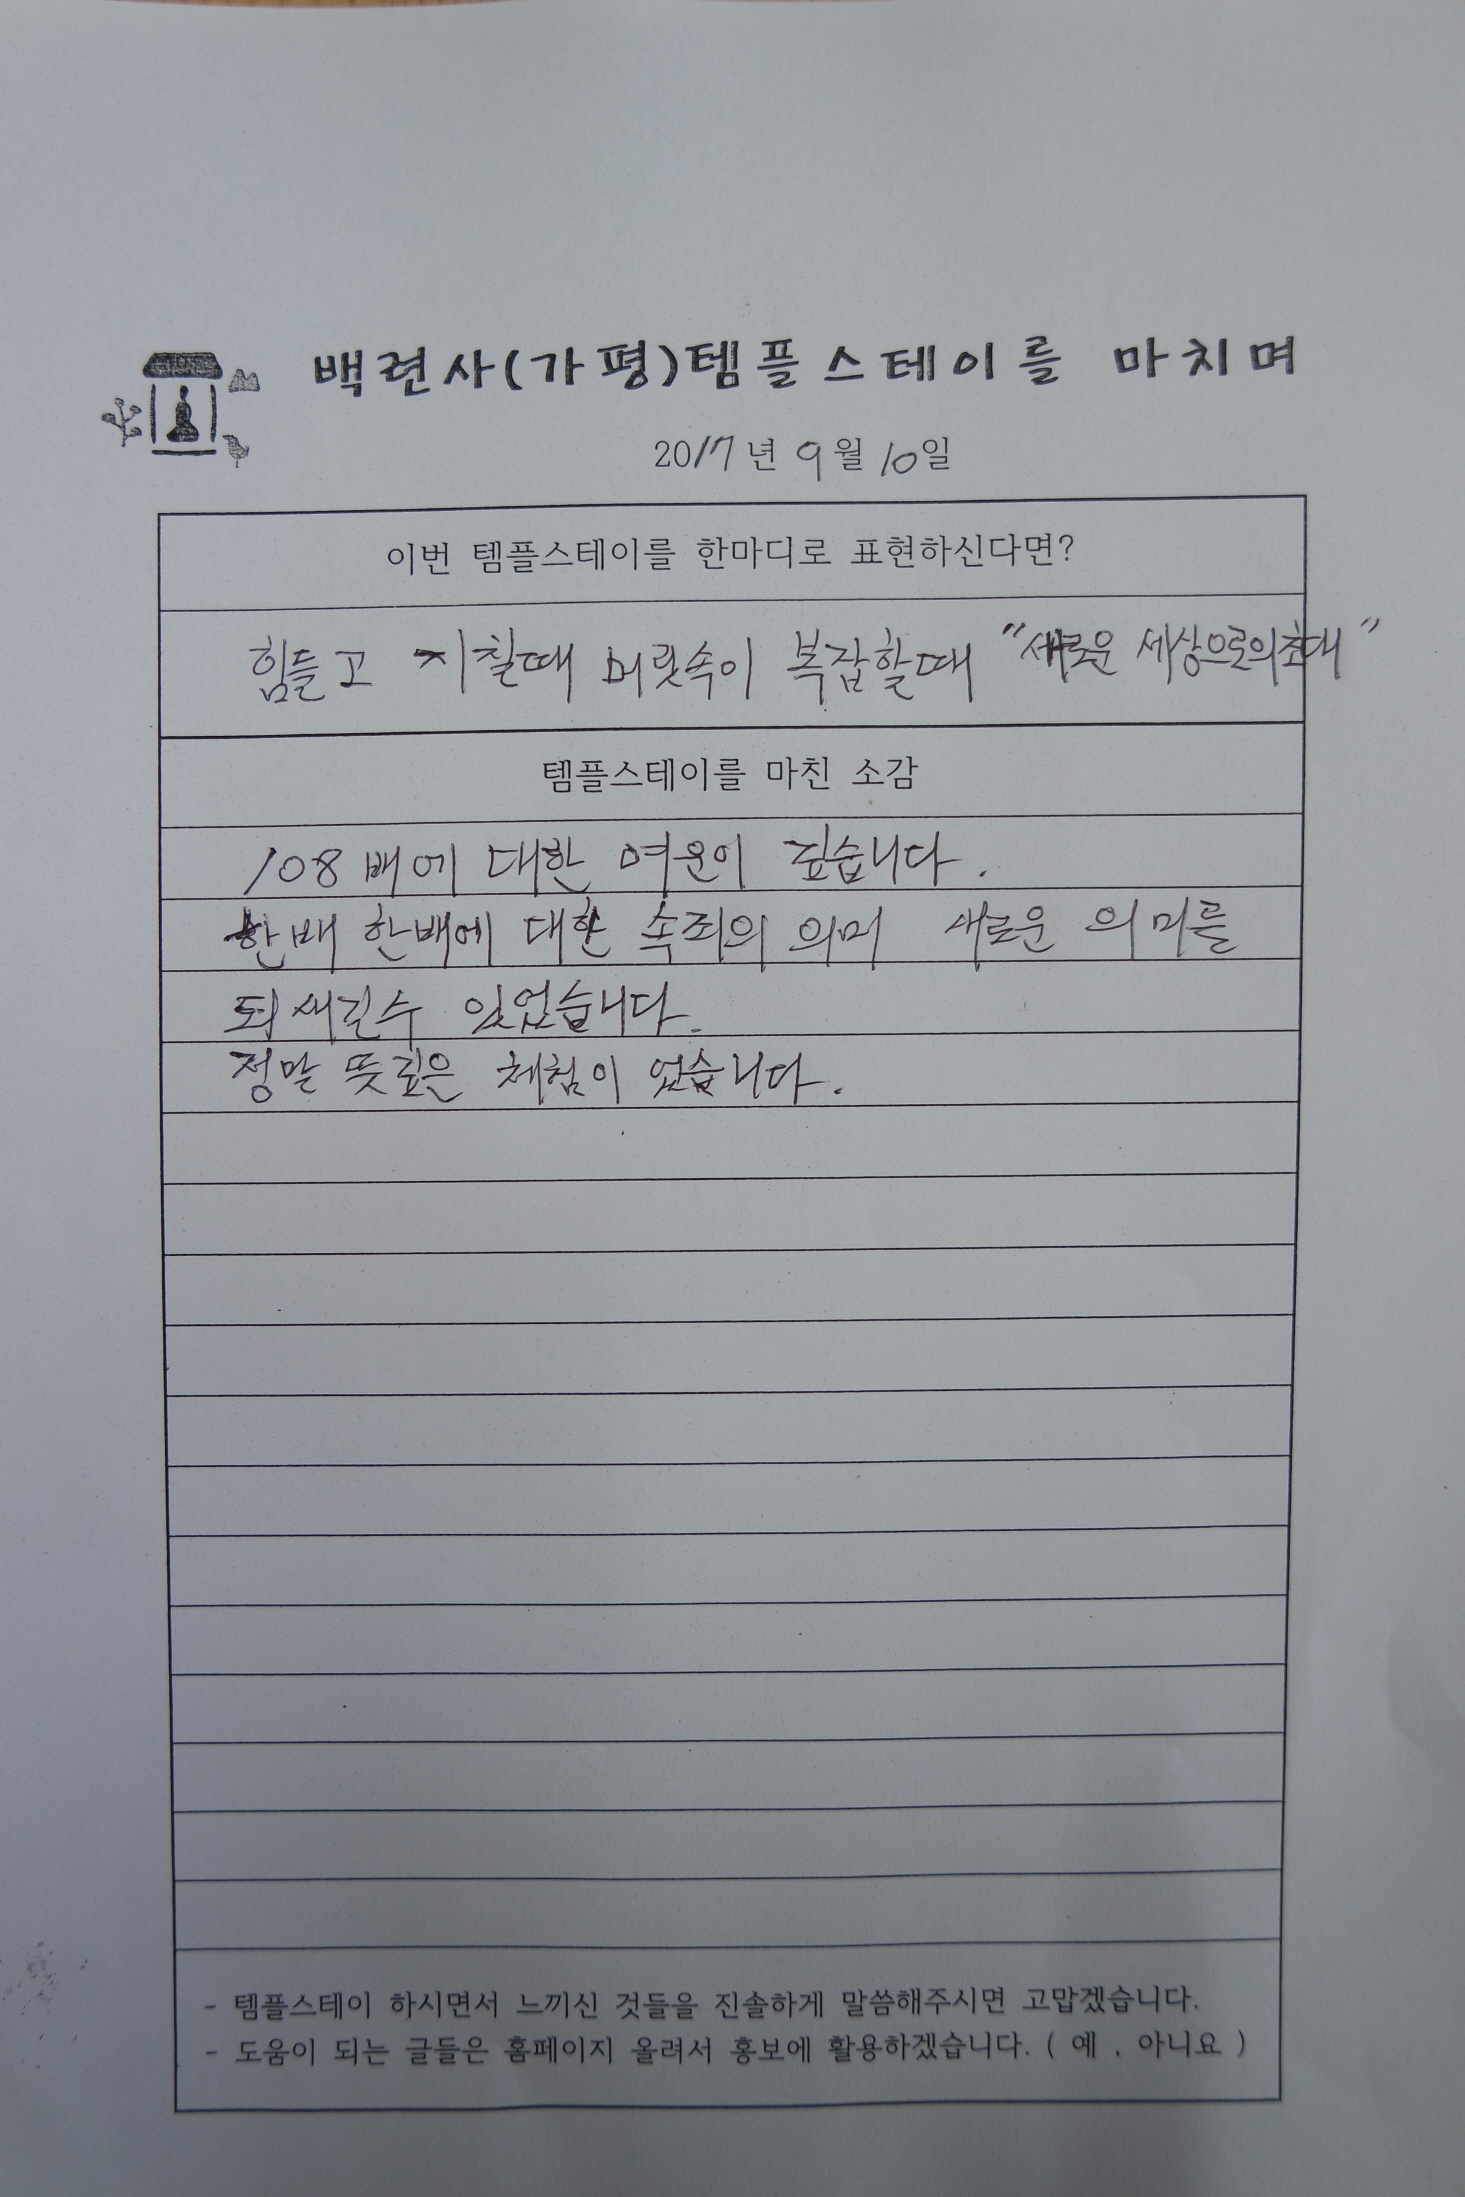 백련사(가평)템플스테이를 마치며
2017년 9월 10일
이번 템플스테이를 한마디로 표현하신다면?
힘들고 지칠때 머릿속이 복잡할때 "새로운 세상으로의초대"
템플스테이를 마친 소감
108배에 대한 여운이 깊습니다.
한배 한배에 대한 속죄의 의미 새로운 의미를
되새길수 있었습니다.
정말 뜻깊은 체험이 었습니다.
- 템플스테이 하시면서 느끼신 것들을 진솔하게 말씀해주시면 고맙겠습니다.
- 도움이 되는 글들은 홈페이지 올려서 홍보에 활용하겠습니다. ( 예 , 아니요 )